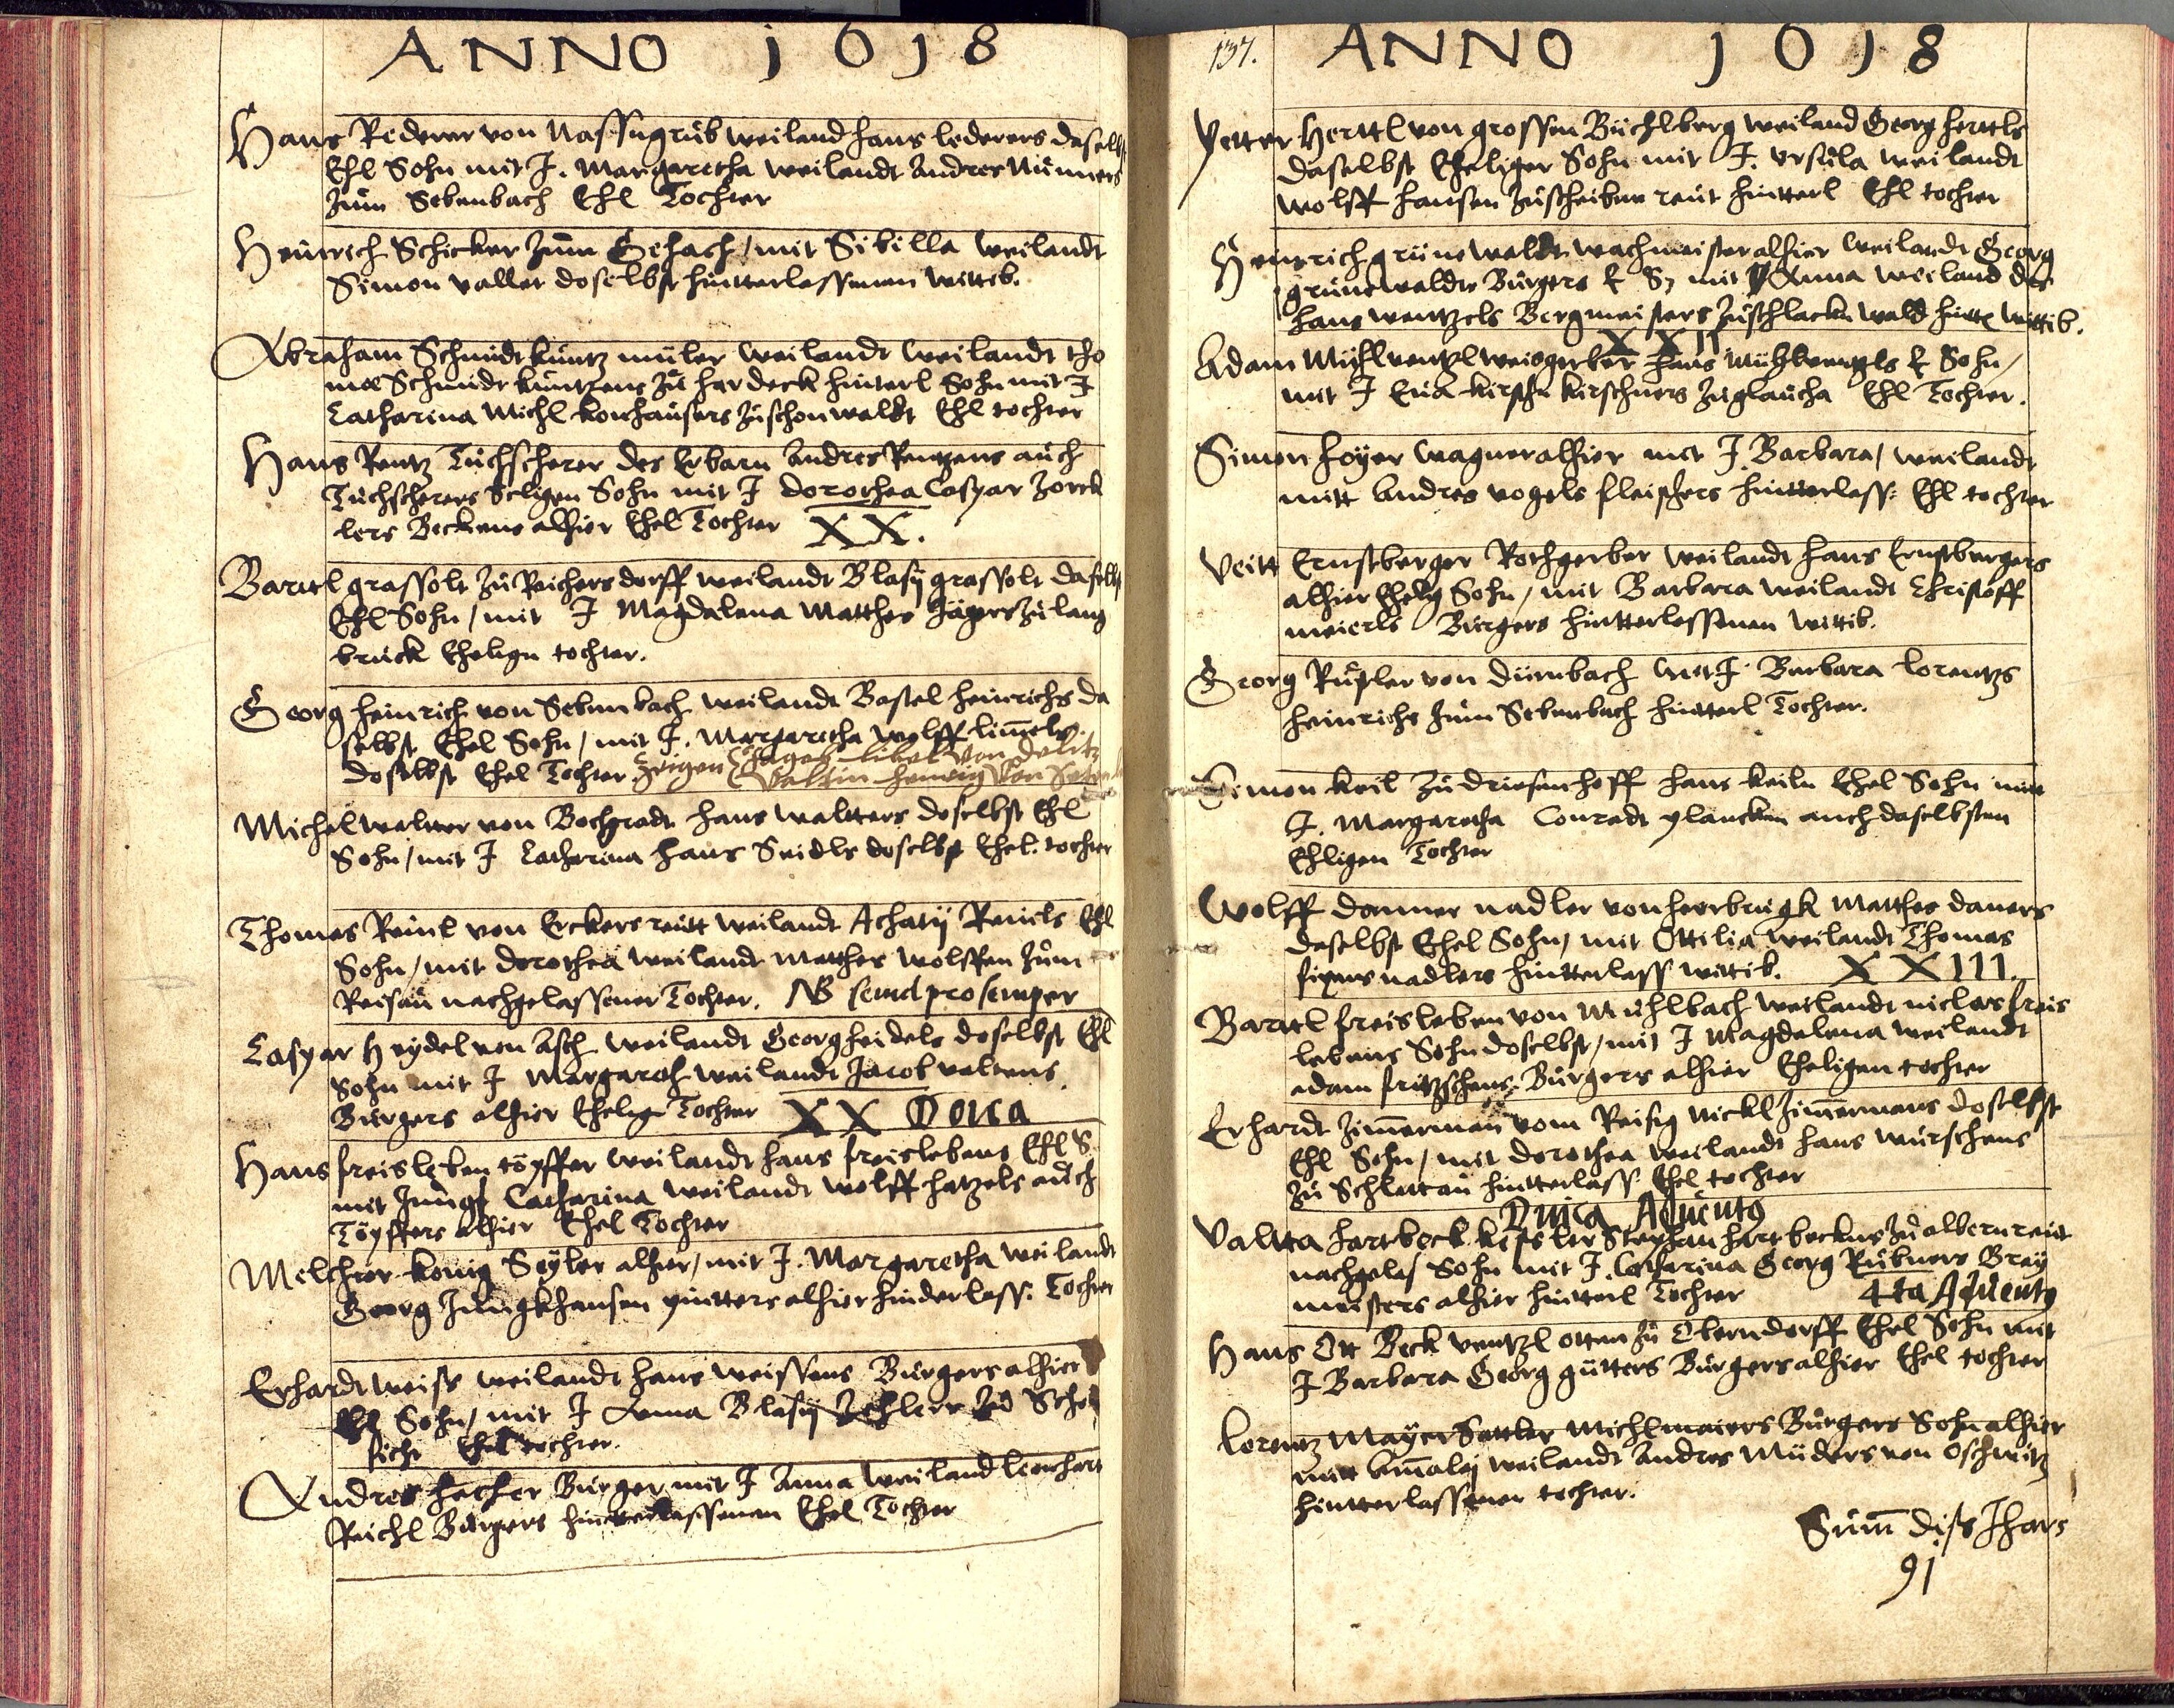 ANNO 1618
Hans Rederer von Nassngrüb weiland hans lederers daselbst
Ehl Sohn mit J. Margaretha weilandt Andres Nünners
zum Sebenbach Ehl Tochter
Heinrich Schicker zum Gehach / mit Sibilla weilandt
Simon doselbst hintterlassenen wittib.
Abraham Schmidt küntz müler weilandt weilandt tho
mae Schmidt küntzens zu hardeck hinterl Sohn mit J
Catharina Michl kornhausers zu schonwaldt Ehl tochter
Hans Rentz Tuchscherer des Erbarn Andres Rentzens auch
Tuchscherers Seligen Sohn mit J dorothea Caspar Zorck
lers Beckens alhier Ehel Tochter XX.
Bartl grassolt zu Reichersdorff weilandt Blasy grassolt daselbst
Ehl Sohn / mit J Magdalena Matthes Jägers zu lang
bruck Ehelign tochter.
Georg heinrich von Sebenbach weilandt Bastel heinrichs da
selbst Ehel Sohn / mit J. Margaretha wolff limels
doselbst Ehel Tochter Zeigen von
Michel walter von Bochgradt hans waltters doselbst Ehl
Sohn / mit J Catharina hans Seidls doselbst Ehel. tochter
Thomas Reinl von Erckersreütt weilandt Achatÿ Reinls Ehl
Sohn / mit dorothea weilandt Matthes wolffen zum
Reisau nachgelassener Tochter. NB semel pro semper
Caspar Heydel von Asch weilandt Georg heidels doselbst Ehl
Sohn mit J Margareth weilandt Jacob veltens
Bürgers alhier Ehelige Tochter XX Dnica
Hans freisleben töpffer weilandt hans freislebens Ehl S.
mit Jungf Catharina weilandt wolff hatzels auch
Töpffers alhier Ehel Tochter
Melcher könig Seyler alhier / mit J. Margaretha weilandt
Georg Jungkhansen alhier hinderlass: Tochter
Erhardt weiss weilandt hans weissens Bürgers alhier
Ehl Sohn / mit J Anna Blasÿ zu
Ehel tochter.
Andres hecher Burger mit J Anna weiland leonhart
Reichl Bürgers hintterlassenen Ehel Tochter
137. ANNO 1618
Petter Herttl von grossen Büchlberg weiland Georg herttls
daselbst Eheliger Sohn mit J. Ursula weilandt
wolff hansen zu scheibenreut hintterl Ehl tochter
Heinrich grünewaldt wachmeister alhier weilandt Georg
grünewaldts Bürgers E S; mit Anna weiland des
hans wentzels Bergmeisters zu schlackenwald hintt wittib.
XXII
Adam Mühlwentzl weisgerber hans Mühlwentzls E Sohn /
mit J Eva kirschn kirschners zu glaucha Ehl Tochter.
Simon hoÿer wagner alhier mit J Barbara / weilandt
mitt Andres vogels fleischers hintterlass: Ehl tochter
Veitt Ernstberger Rothgerber weilandt hans Ernstbergers
alhier Ehelig Sohn / mit Barbara weilandt Christoff
meierls Bürgers hintterlassenen wittib.
Georg Rupler von dürnbach mit J Barbara lorentzs
heinrichs zum Sebenbach hintterl Tochter.
Simon keil zu driesenhoff hans keiln Ehel Sohn mit
J. Margaretha Conradt plancken auch daselbsten
Ehligen Tochter
Wolff danner nadler von heerbrugk Matthes daners
daselbst Ehel Sohn / mit Ottilia weilandt Thomas
nadlers hintterlass wittib. XXIII.
Bartl freisleben von Mühlbach weilandt niclas freis
lebens Sohn doselbst / mit J Magdalena weilandt
adam fritzschens Bürgers alhier Eheligen tochter
Erhardt Zimerman vom Reisig Nickl Zimermans doselbst
Ehl Sohn / mit dorothea weilandt hans würschens
zu Schlettau hintterlass Ehel tochter
Dnica Advents
Valtta hartbeck kessler Stephan hartbeckens zu albernreüt
nachgelas Sohn mit J. Catharina Georg Rubners Breÿ
meisters alhier hintterl Tochter 4ta Advents
Hans Ott Beck wentzl otten zu Oberndorff Ehel Sohn mit
J Barbara Georg gütters Bürgers alhier Ehel tochter
Lorentz Mayer Sattler Michl maiers Bürgers Sohn alhier
mitt Amaleÿ weilandt Andres Müders von Oschwitz
hintterlassener tochter.
Sum diss Jhars
91